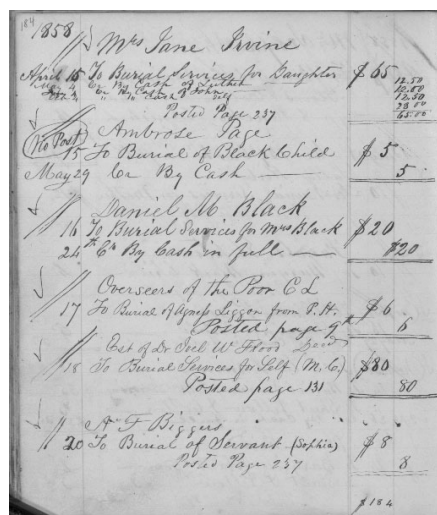 184
1858
Mrs Jane Irvine
April 15 To Burial Services for Daughter $65
Cr By Cash 12.50
Cr By Cash of John 10.00
" " Cash 12.50
23 00
65.00
Posted Page 237
No Post
Ambrose Page
15 To Burial of Black Child $5
May 29 Cr By Cash 5
Daniel M. Black
16 To Burial Services for Mrs Black $20
24th Cr By Cash in full $20
Overseers of the Poor C L
17 To Burial of Agness Liggon from P. H. $6
Posted page 9th 6
Est of Dr Joel W Flood
18 To Burial Services for Self (M. C.) $80
Posted page 131 80
A F Biggers
20 To Burial of Servant (Sophia) $8
Posted Page 237 8
$184